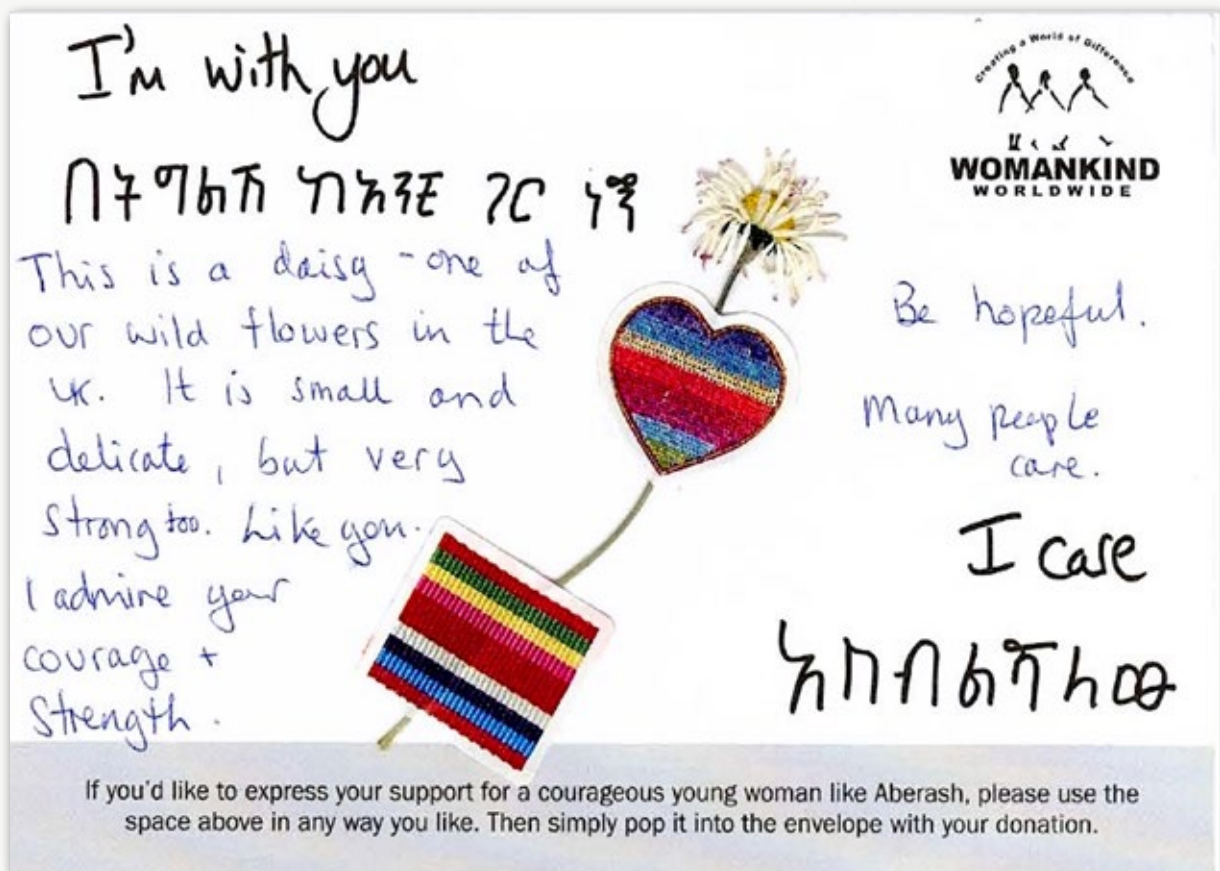 I'm with you
በትግልሽ ከአንቺ ጋር ነኝ
This is a daisy - one of
our wild flowers in the
UK. It is small and
delicate, but very
strong too. Like you.
I admire your
courage +
strength.
Creating a World of Difference
WOMANKIND
WORLDWIDE
Be hopeful.
Many people
care.
I care
አከብልሻለው
If you'd like to express your support for a courageous young woman like Aberash, please use the
space above in any way you like. Then simply pop it into the envelope with your donation.